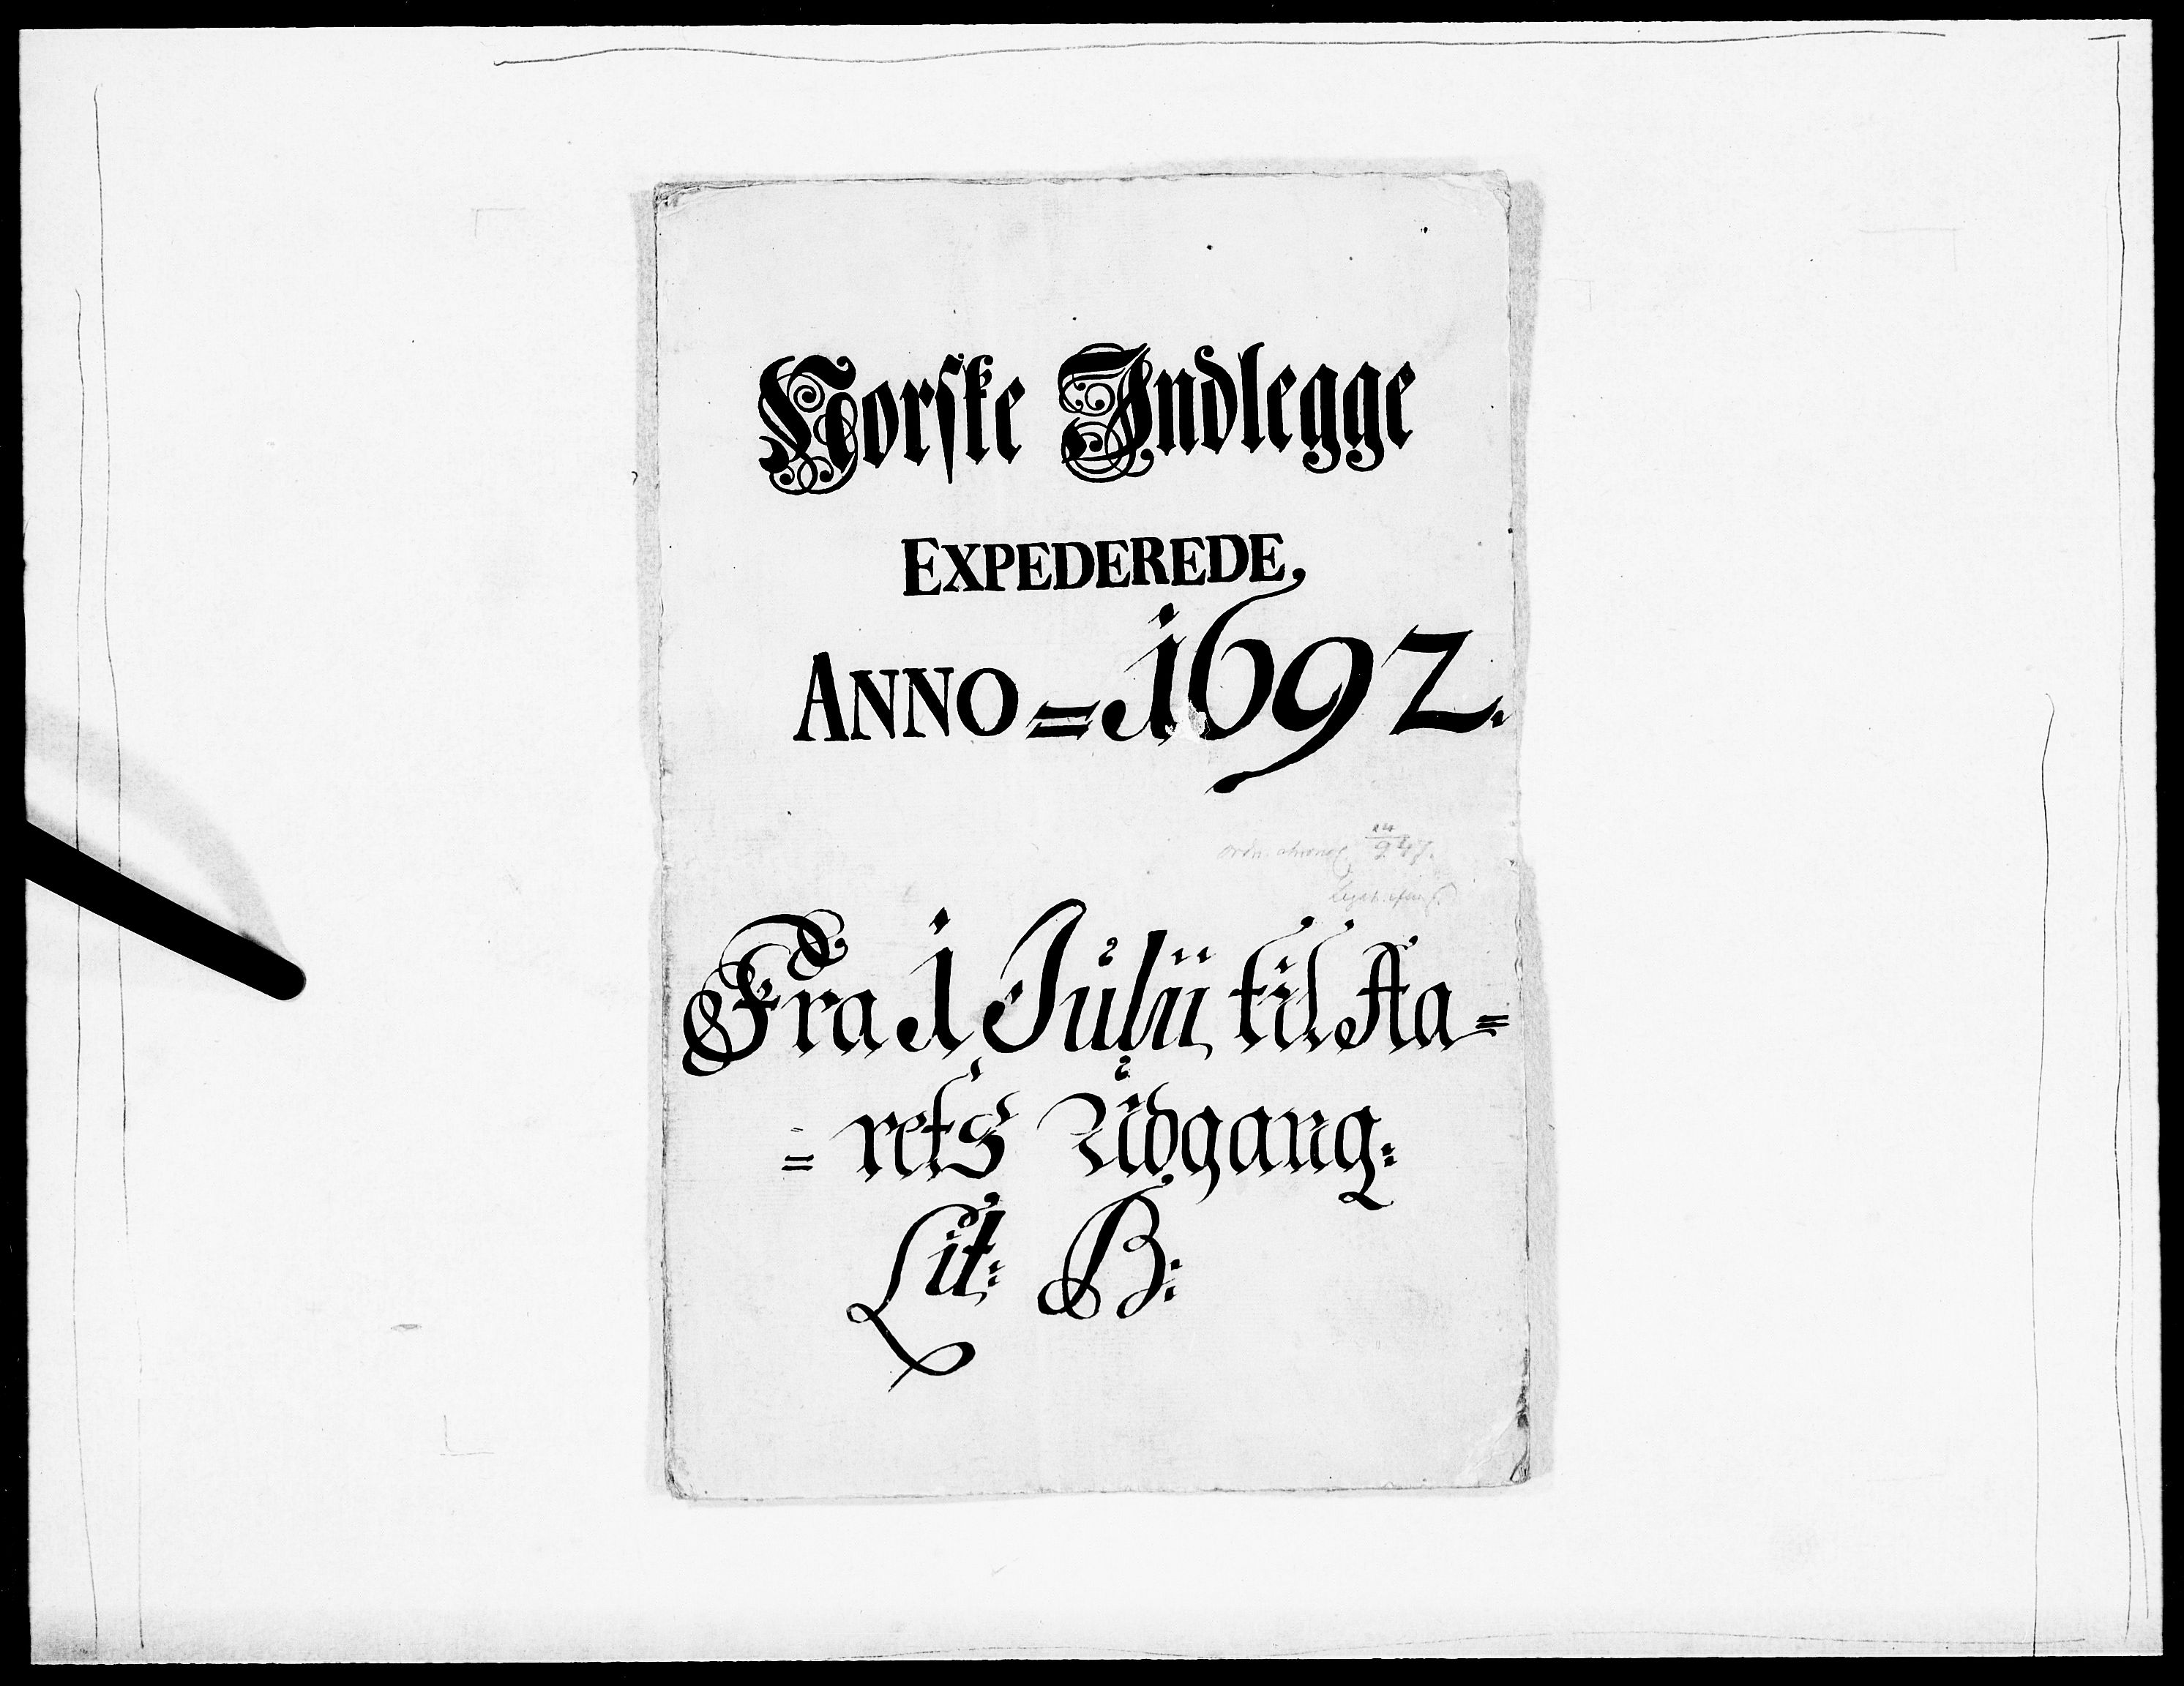 Norske Indlegge
EXPEDEREDE,
ANNO = 1692.
ordn. 24/9 47.
Fra 1 Julii til Aa=
= rets Udgang:
Lit: B: